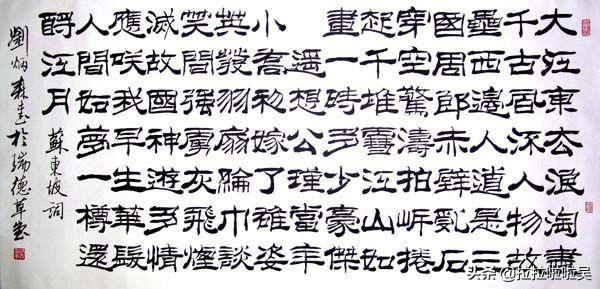 大江東去浪淘盡
千古風流人物故
壘西邊人道是三
國周郎赤壁亂石
穿空驚濤拍岸捲
起千堆雪江山如
畫一時多少豪傑
遥想公瑾當年
小喬初嫁了雄姿
英發羽扇綸巾談
笑間強虜灰飛煙
滅故國神遊多情
應咲我早生華髮
人間如夢一樽還
酹江月 蘇東坡詞
劉炳森書於瑞德草堂
头条 @拉拉啦啦吴